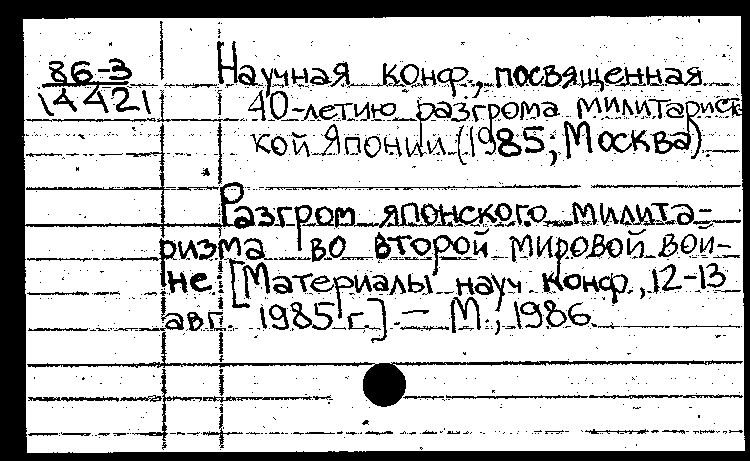 86-3
14421
Научная конф., посвященная
40-летию разгрома милитарист
кой Японии (1985; Москва).
Разгром японского милита-
ризма во второй мировой вой-
не [Материалы науч конф., 12-13
авг. 1985 г.]. — М., 1986.